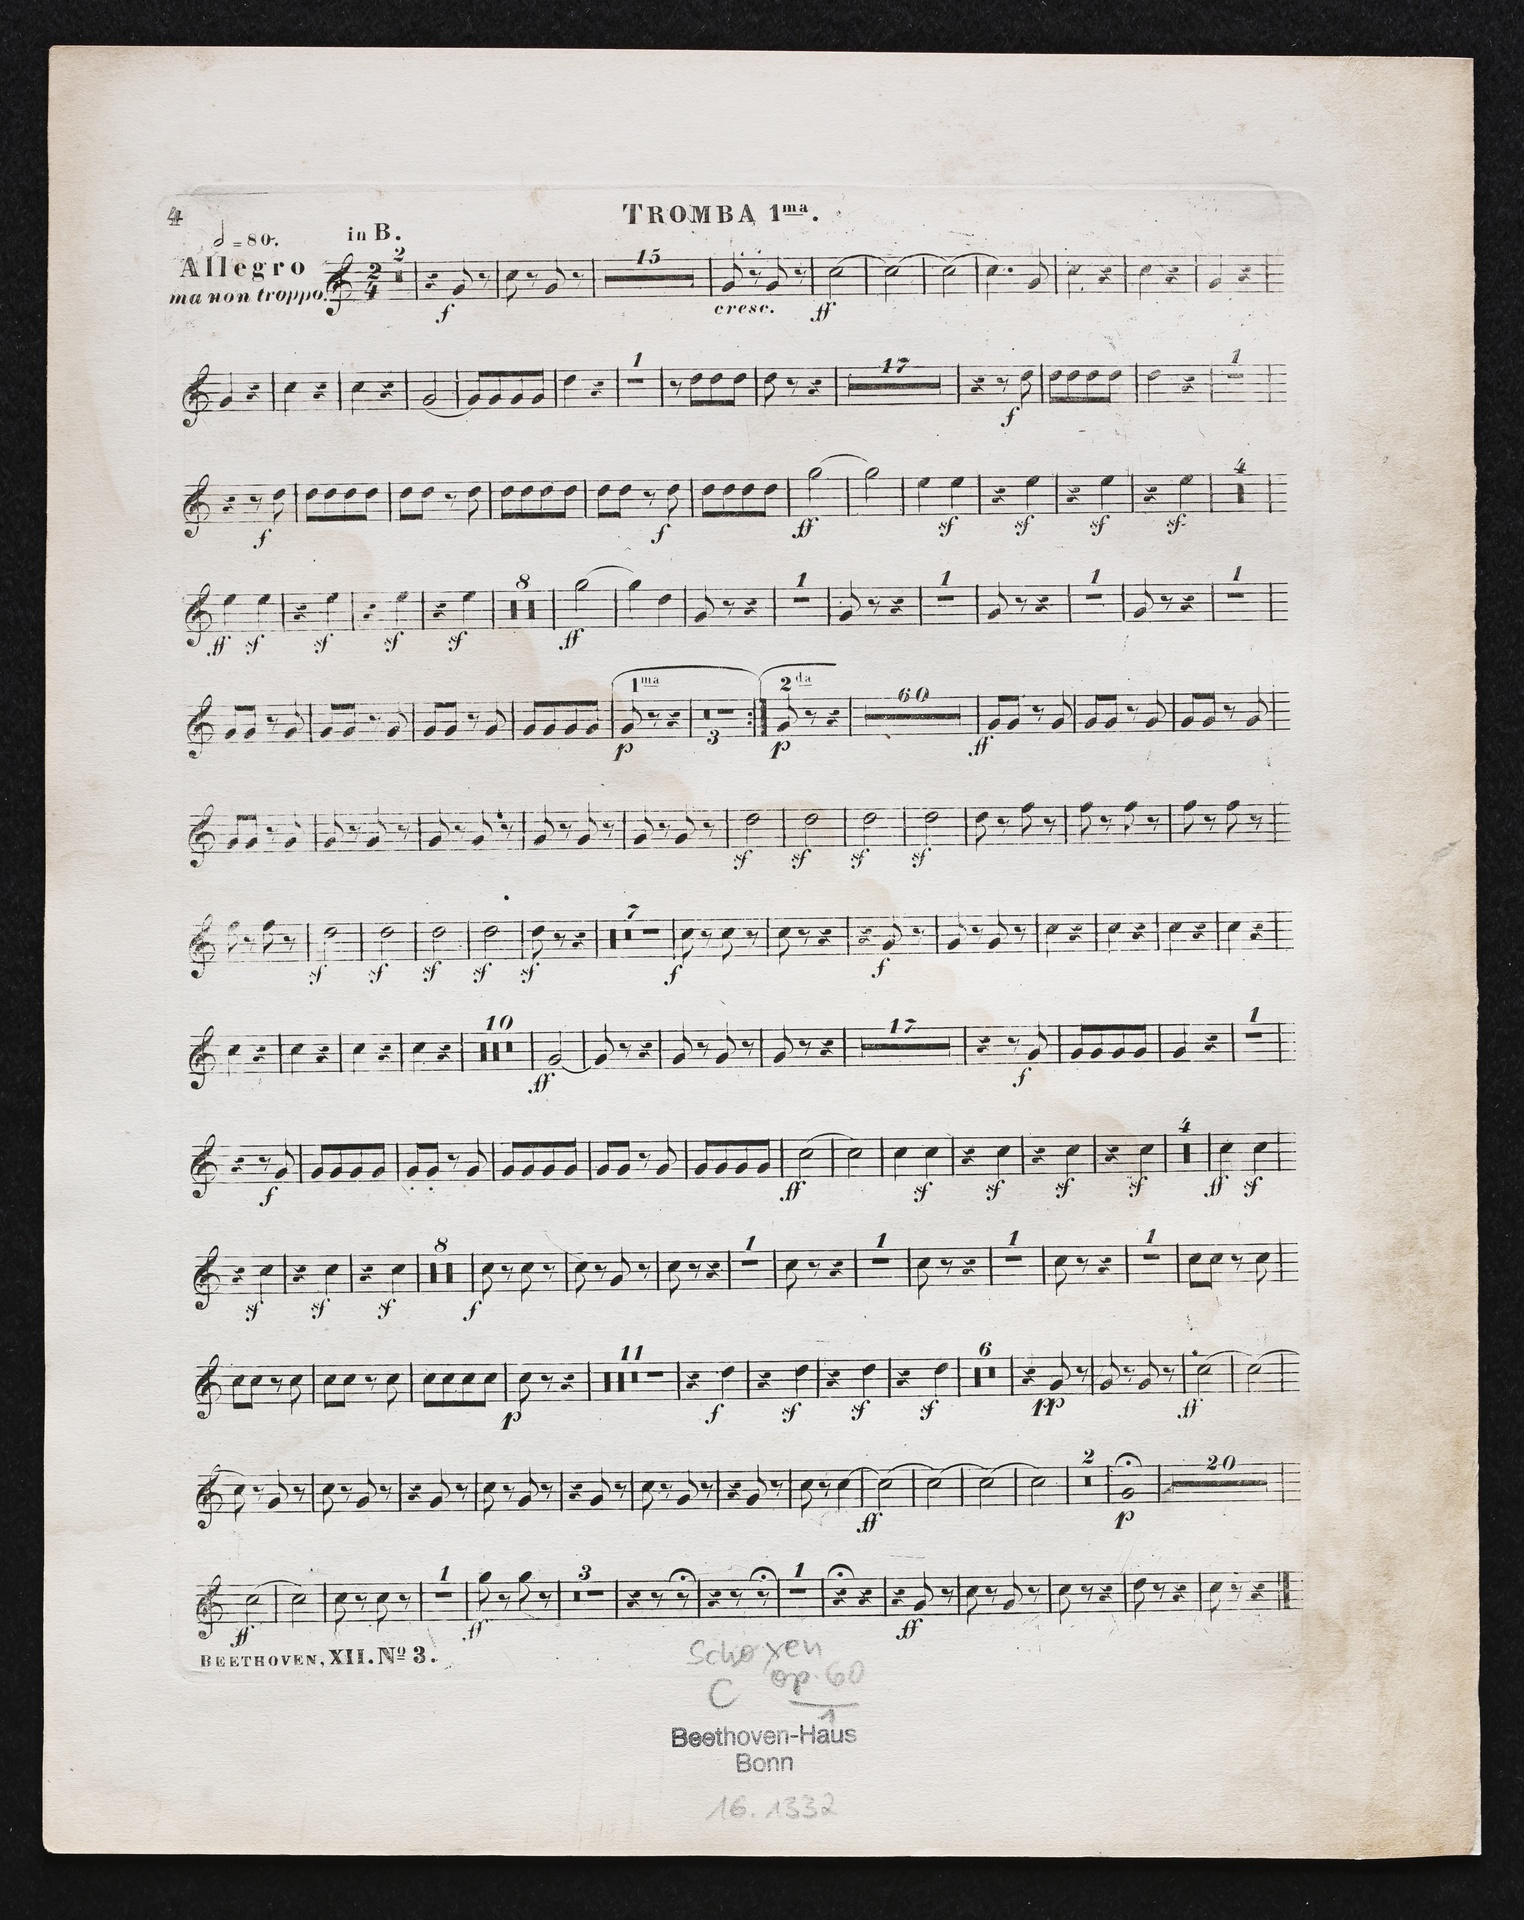 4
TROMBA 1ma.
𝅗𝅥 = 80.
in B.
Allegro
ma non troppo.
2
15
f
cresc.
ff
1
17
1
f
4
f
f
ff
sf
sf
sf
sf
8
1
1
1
1
ff
sf
sf
sf
sf
ff
1ma
2da
60
p
3
p
ff
sf
sf
sf
sf
7
sf
sf
sf
sf
sf
f
f
10
17
1
ff
f
4
f
ff
sf
sf
sf
sf
ff
sf
8
1
1
1
1
sf
sf
sf
f
11
6
p
f
sf
sf
sf
pp
ff
2
20
ff
p
1
3
1
ff
ff
ff
BEETHOVEN, XII. No 3.
C
op. 60
1
Beethoven-Haus
Bonn
16. 1332